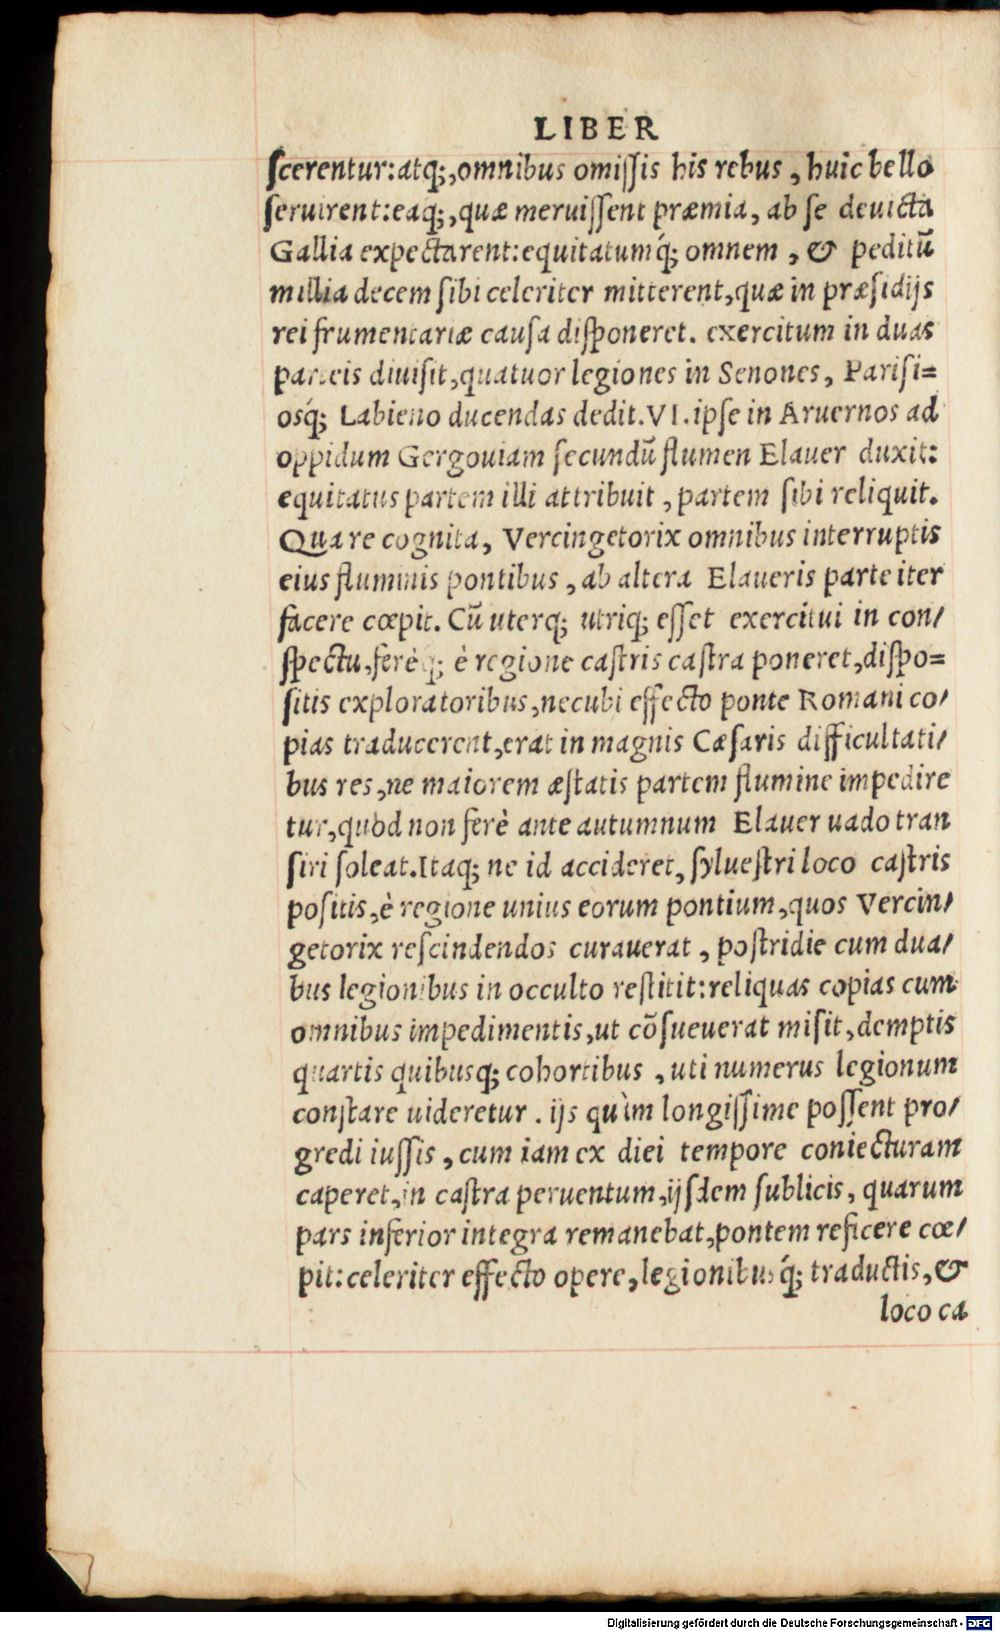 LIBER
ſcerentur:atq;,omnibus omiſſis his rebus, huic bello
ſeruirent:eaq;,quæ meruiſſent præmia, ab ſe deuicta
Gallia expectarent:equitatumq́; omnem, & peditũ
millia decem ſibi celeriter mitterent,quæ in præſidijs
rei frumentariæ cauſa diſponeret. exercitum in duas
parteis diuiſit,quatuor legiones in Senones, Pariſi=
osq́; Labieno ducendas dedit.VI.ipſe in Aruernos ad
oppidum Gergouiam ſecundũ flumen Elauer duxit:
equitatus partem illi attribuit, partem ſibi reliquit.
Qua re cognita, Vercingetorix omnibus interruptis
eius fluminis pontibus, ab altera Elaueris parte iter
facere cœpit. Cũ uterq; utriq; eſſet exercitui in con/
ſpectu,ferèq; è regione caſtris caſtra poneret,diſpo=
ſitis exploratoribus,necubi effecto ponte Romani co/
pias traducerent,erat in magnis Cæſaris difficultati/
bus res,ne maiorem æſtatis partem flumine impedire
tur,quòd non ferè ante autumnum Elauer uado tran
ſiri ſoleat.Itaq; ne id accideret, ſylueſtri loco caſtris
poſitis,è regione unius eorum pontium,quos Vercin/
getorix reſcindendos curauerat, poſtridie cum dua/
bus legionibus in occulto reſtitit:reliquas copias cum
omnibus impedimentis,ut cõſueuerat miſit,demptis
quartis quibusq; cohortibus, uti numerus legionum
conſtare uideretur. ijs quàm longiſſime poſſent pro/
gredi iuſſis, cum iam ex diei tempore coniecturam
caperet,in caſtra peruentum,ijſdem ſublicis, quarum
pars inferior integra remanebat,pontem reficere cœ/
pit:celeriter effecto opere,legionibusq́; traductis,&
loco ca
Digitalisierung gefördert durch die Deutsche Forschungsgemeinschaft - DFG